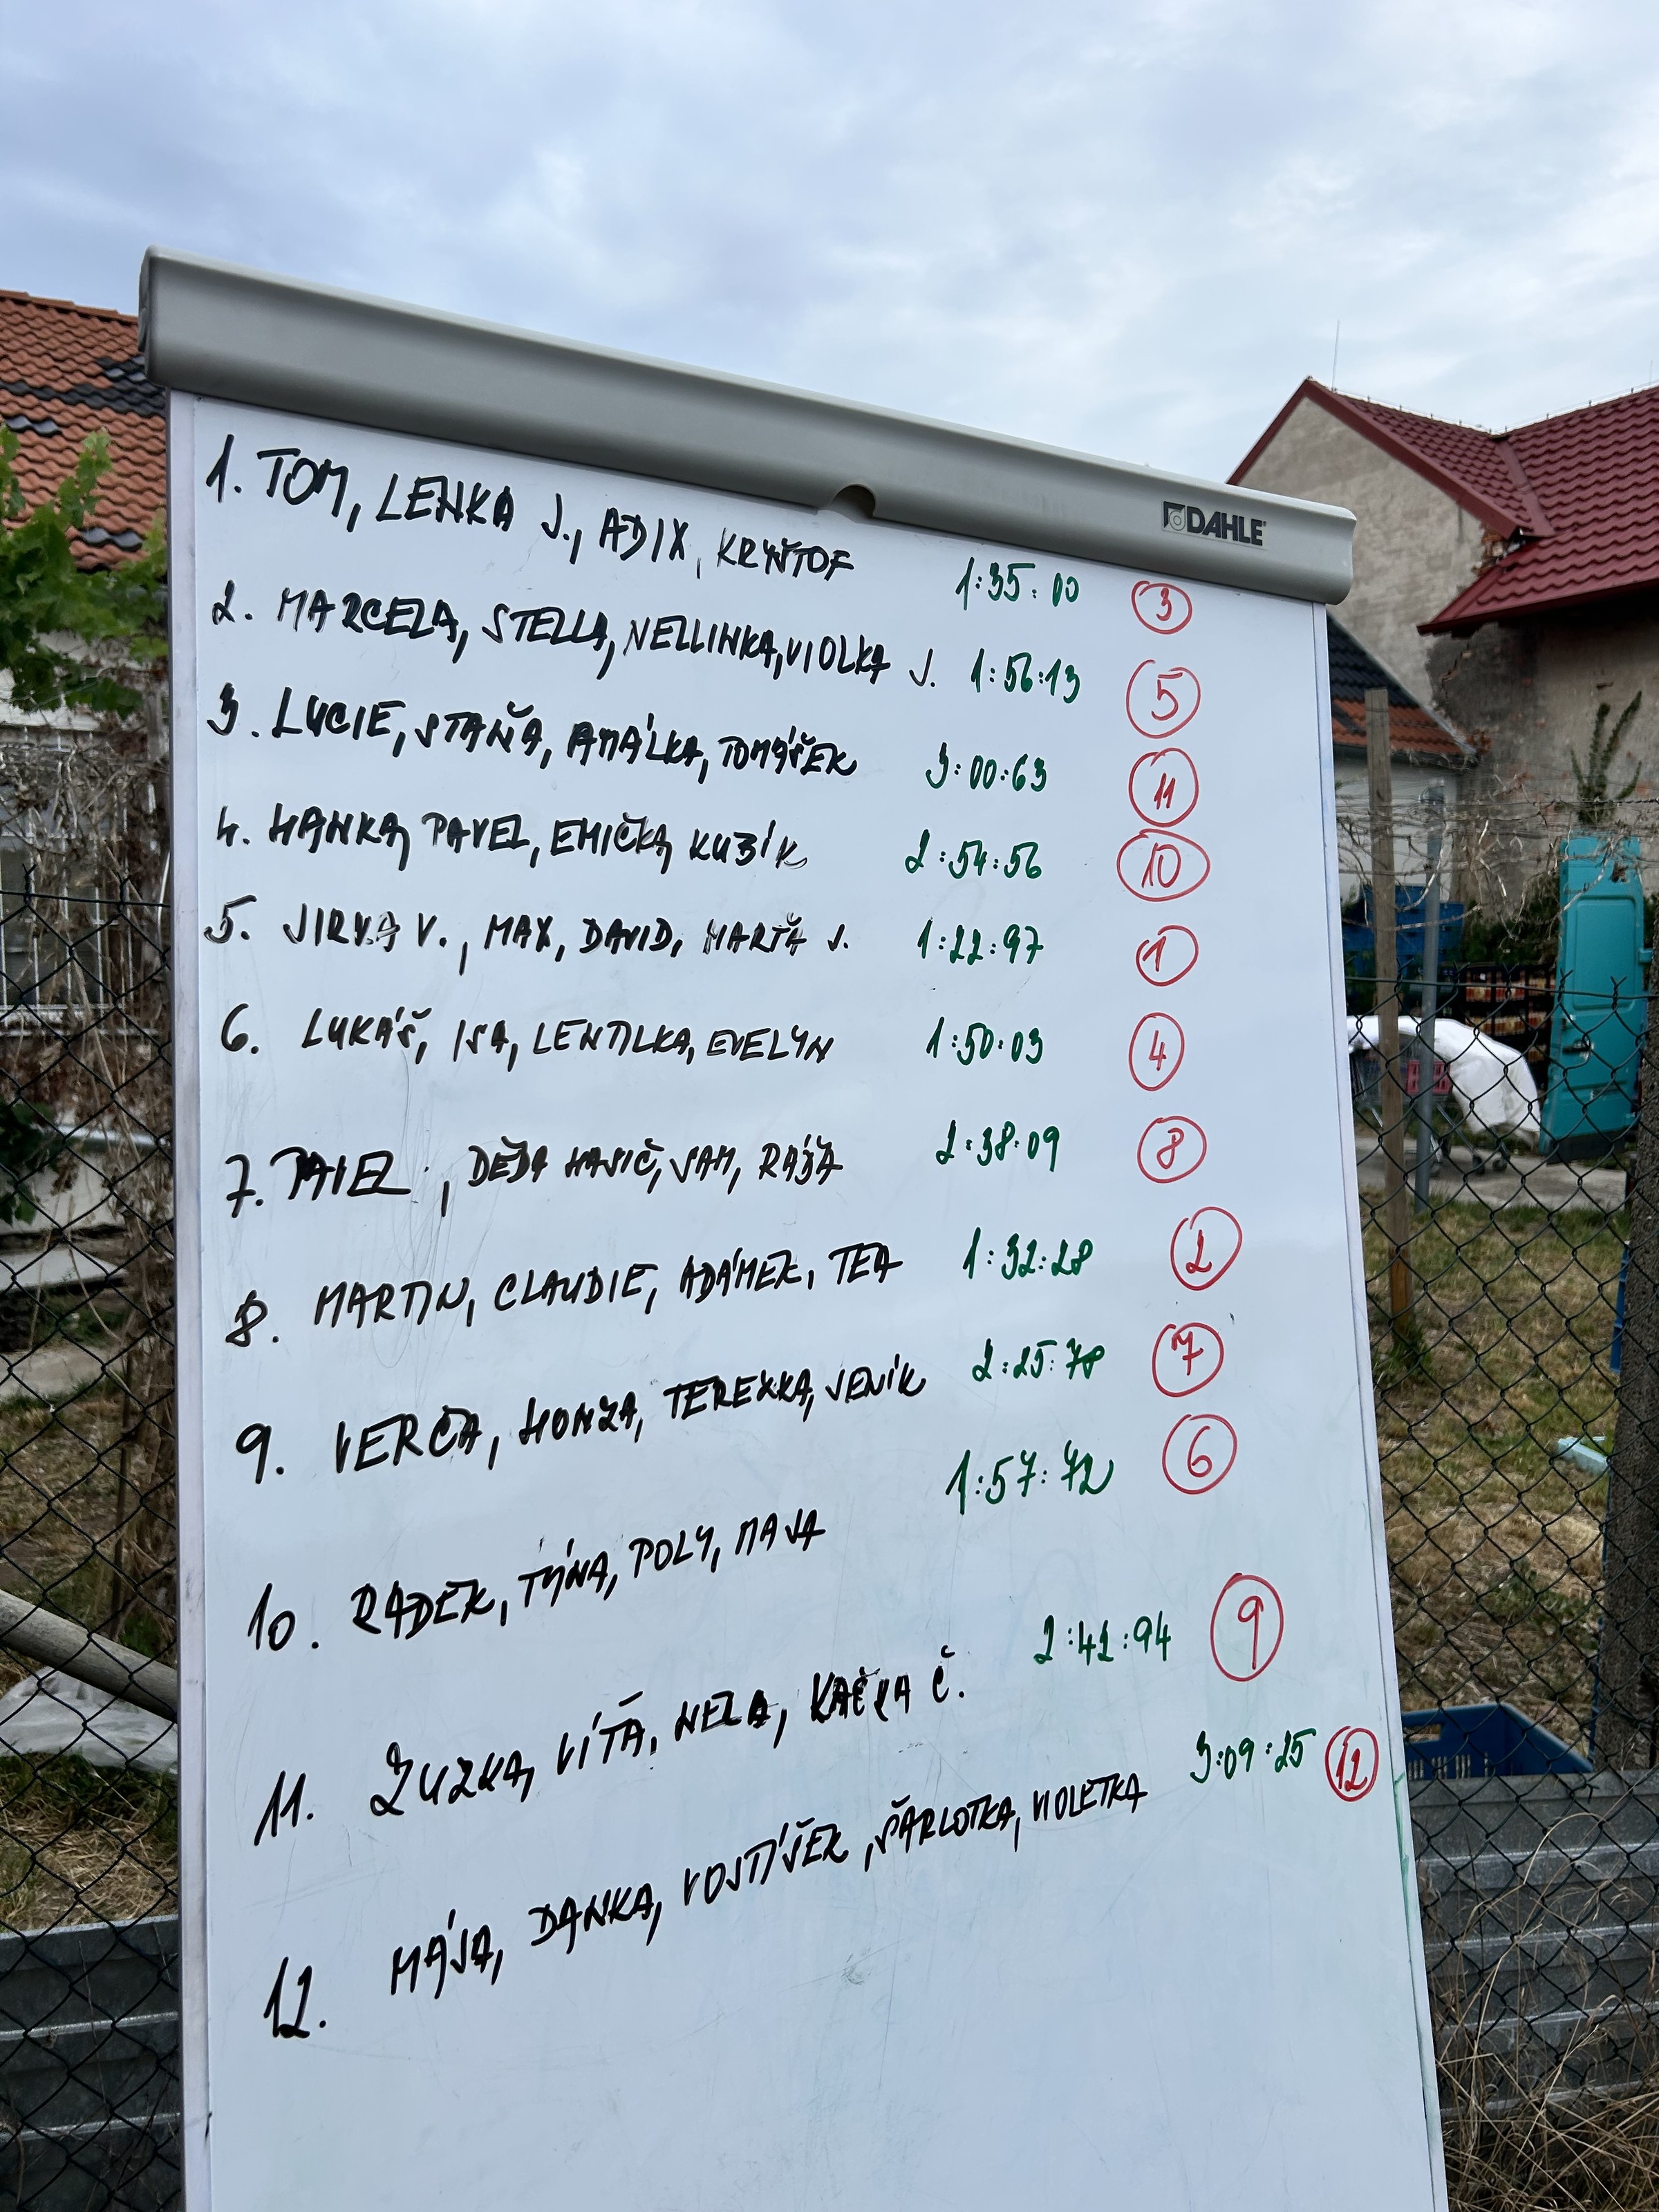 DAHLE
1. TOM, LENKA J., ADIX, KRYŠTOF 1:35:00 3
2. MARCELA, STELLA, NELLINKA, VIOLKA J. 1:56:13 5
3. LUCIE, STAŇA, AMÁLKA, TOMÁŠEK 3:00:63 11
4. HANKA, PAVEL, EMIČKA, KUBÍK 2:54:56 10
5. JIRKA V., MAX, DAVID, J. 1:22:97 1
6. LUKÁŠ, ISA, LENTILKA, EVELYN 1:50:03 4
7. PAVEL, DĚDA HASIČ, SAM, 2:38:09 8
8. MARTIN, CLAUDIE, ADÁMEK, TEA 1:32:28 2
9. VERČA, HONZA, TEREZKA, JENÍK 2:25:78 7
10. RADEK, TÝNA, POLY, MAJA 1:57:72 6
11. ZUZKA, VÍTA, NELA, KAČKA Č. 2:42:94 9
12. MÁJA, DANKA, VOJTÍŠEK, ŠARLOTKA, VIOLETKA 3:09:25 12